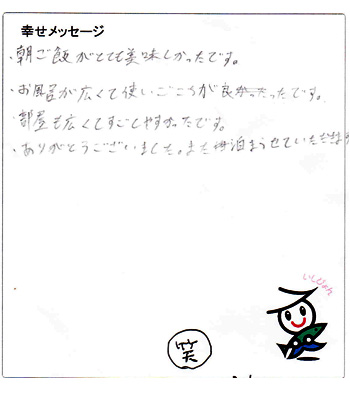 幸せメッセージ
・朝ご飯がとても美味しかったです。
・お風呂が広くて使いごこちが良かったです。
・部屋も広くてすごしやすかったです。
・ありがとうございました。また宿泊させていただきます
いしぴょん
笑